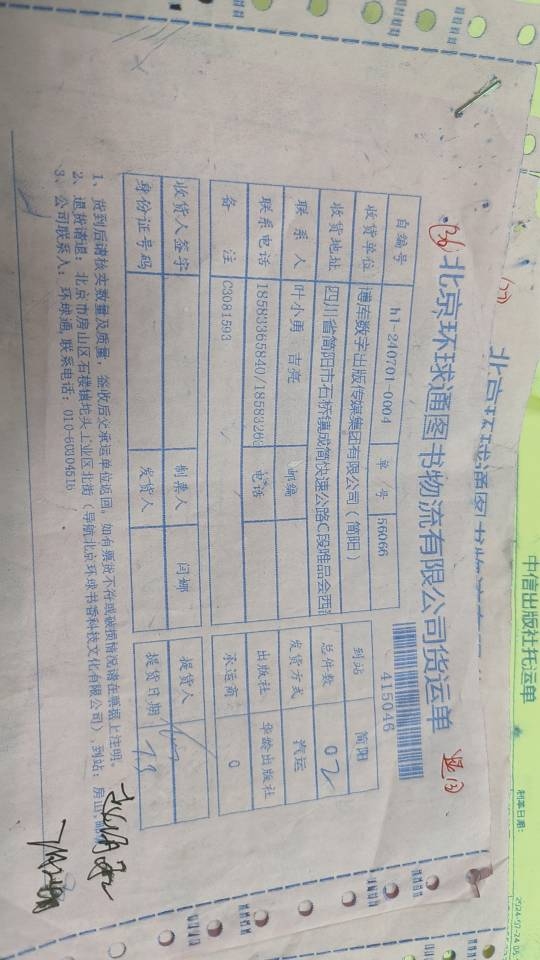 中信出版社托运单
北京环球通图书物流有限公司货运单
415046
自编号 h1-240701-0004 单号 56066 到站 简阳
收货单位 博库数字出版传媒集团有限公司（简阳） 总件数 02
收货地址 四川省简阳市石桥镇成简快速公路C段唯品会西 发货方式 汽运
联系人 叶小勇 吉亮 邮编 出版社 华龄出版社
联系电话 18583365840/18583263 电话 承运商 0
备注 C3081593
收货人签字 制票人 闫娜 提货人
身份证号码 发货人 提货日期 7.9
1、货到后请核实数量及质量，签收后交承运单位返回。如有票货不符或破损情况请在票据上注明。
2、退货请退：北京市房山区石楼镇坨头工业区北街（导航北京环球书香科技文化有限公司）,到站：房山,邮编
3、公司联系人：环球通,联系电话：010-60304516